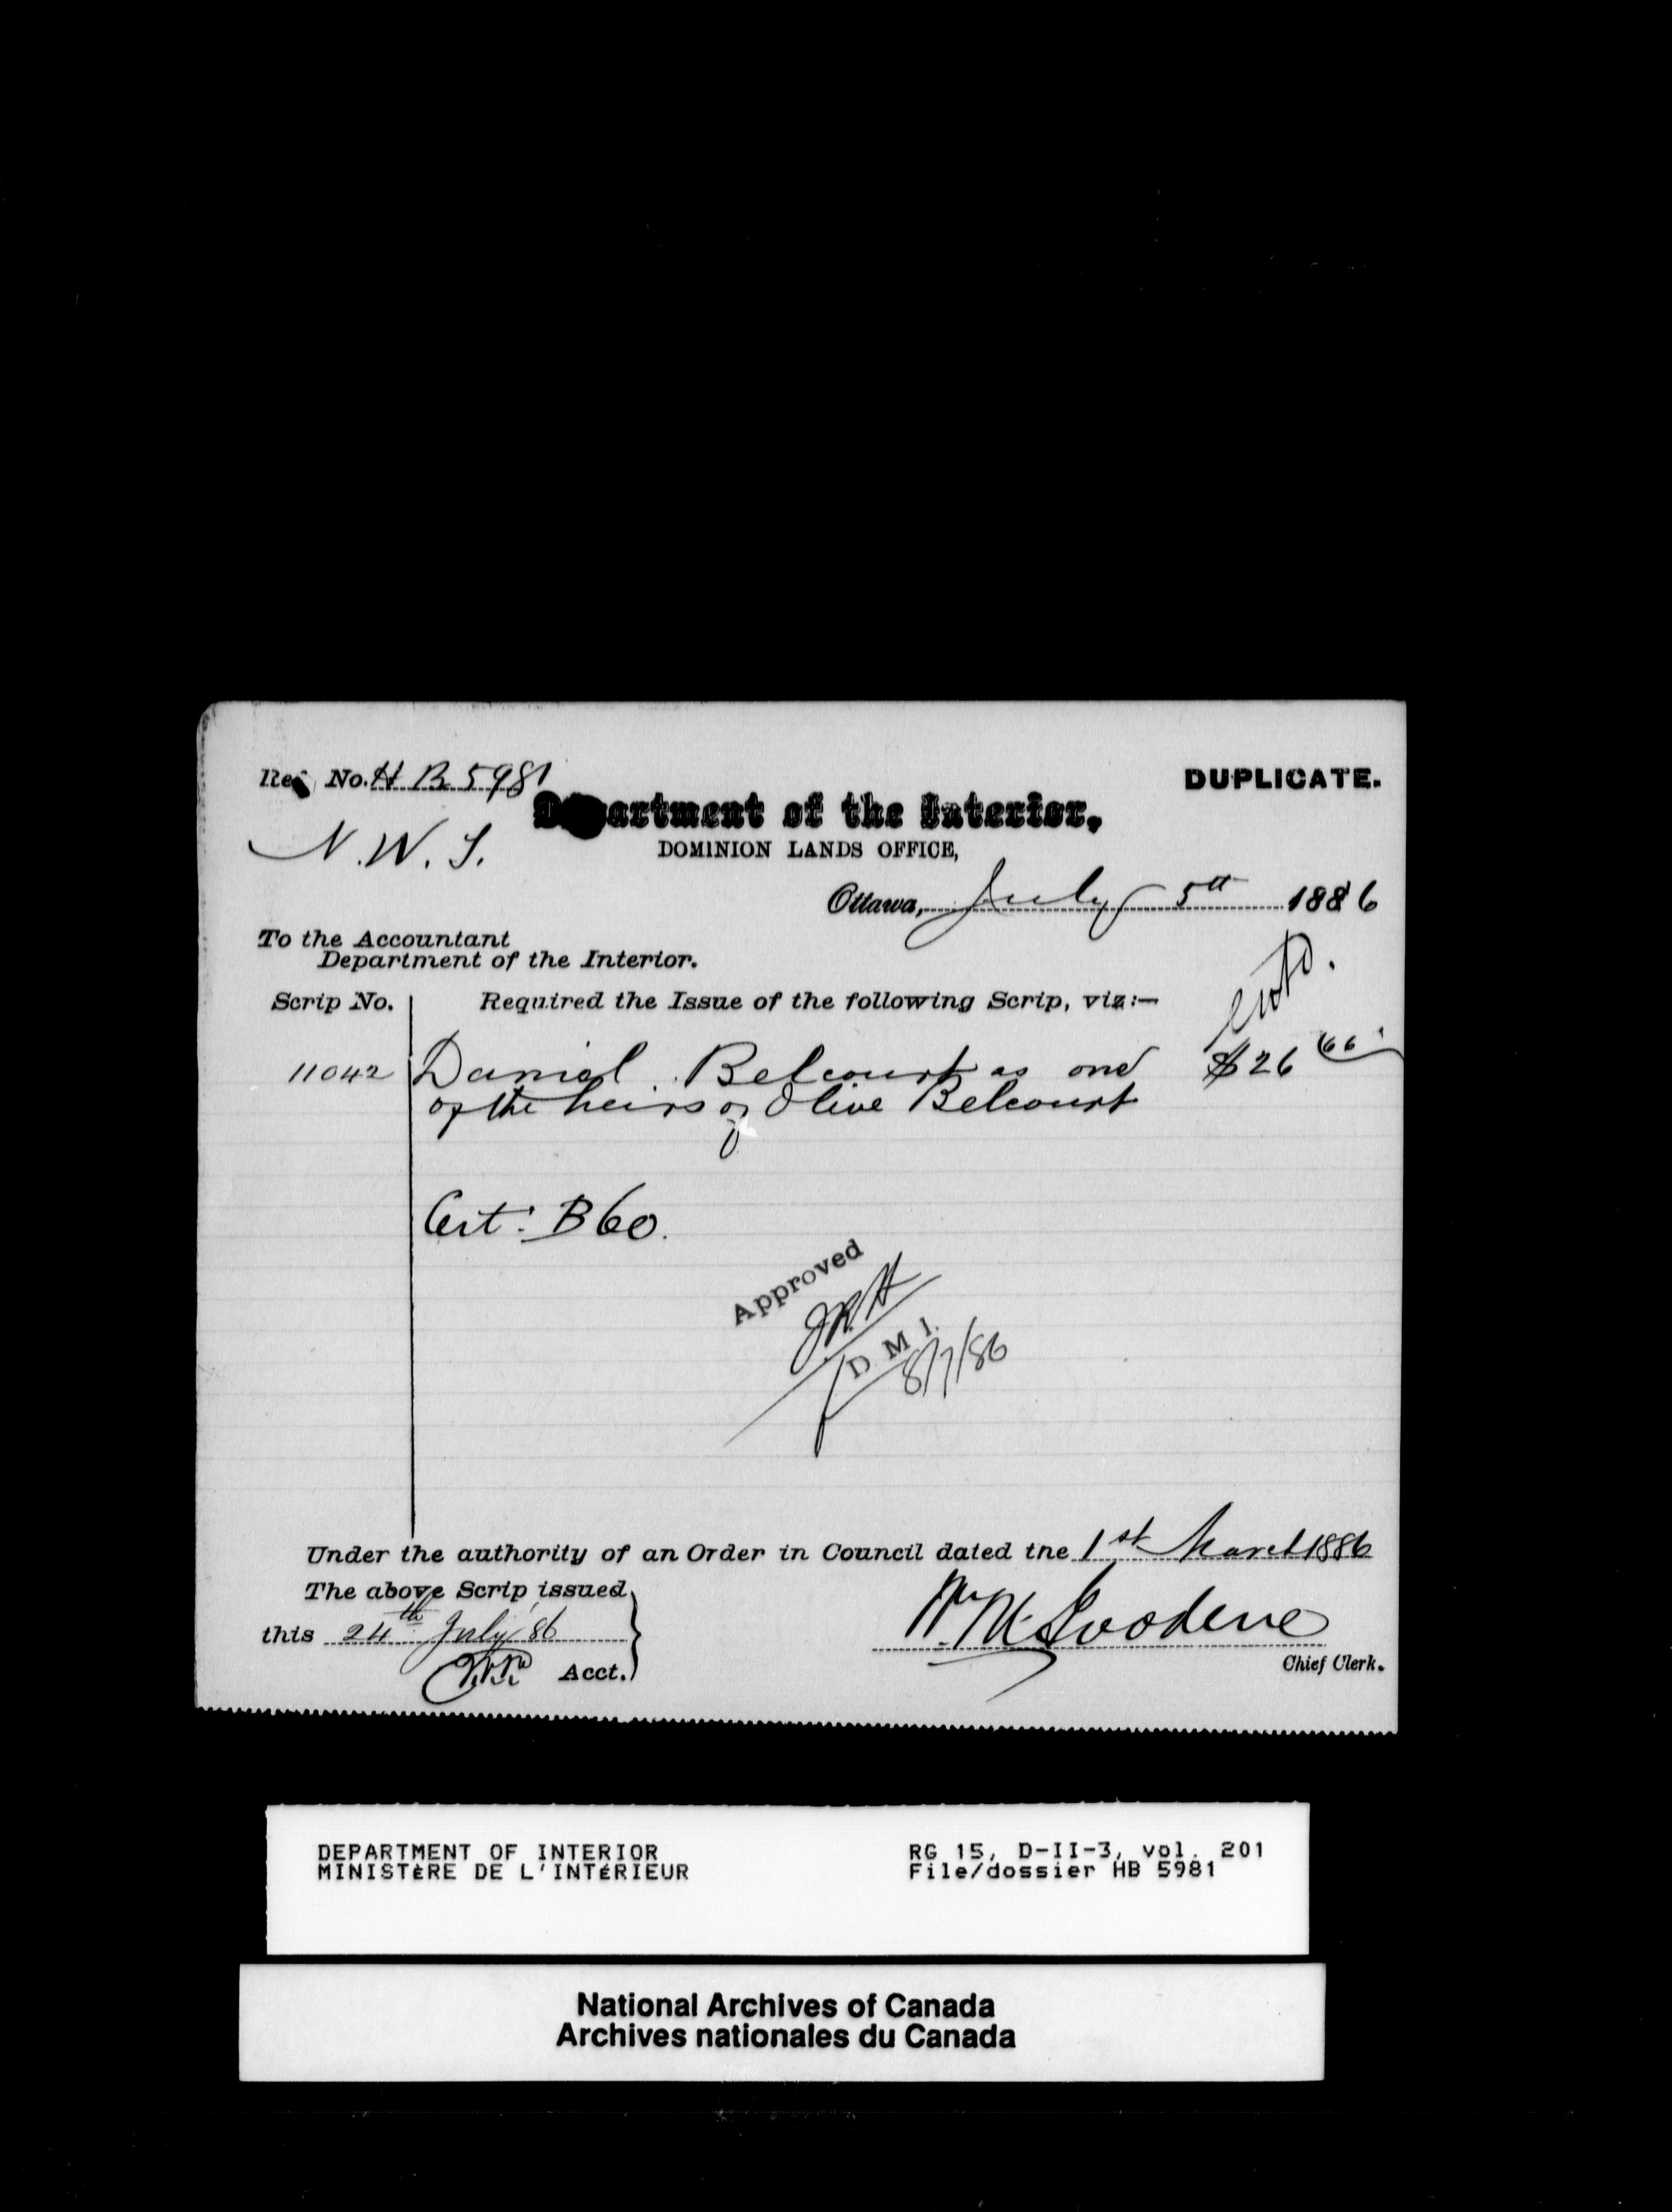 Ref No. H B 5981
DUPLICATE.
Department of the Interior,
N.W.T.
DOMINION LANDS OFFICE,
Ottawa, July 5th 1886
To the Accountant
Department of the Interior.
Scrip No. Required the Issue of the following Scrip, viz:—
11042 Daniel Belcourt as one $26 66
of the heirs of Olive Belcourt
Cert: B 60.
Approved
D M I.
8/7/86
Under the authority of an Order in Council dated the 1st March 1886
The above Scrip issued
this 24th July '86
Acct.
Chief Clerk.
DEPARTMENT OF INTERIOR
MINISTÈRE DE L'INTÉRIEUR
RG 15, D-II-3, vol. 201
File/dossier HB 5981
National Archives of Canada
Archives nationales du Canada